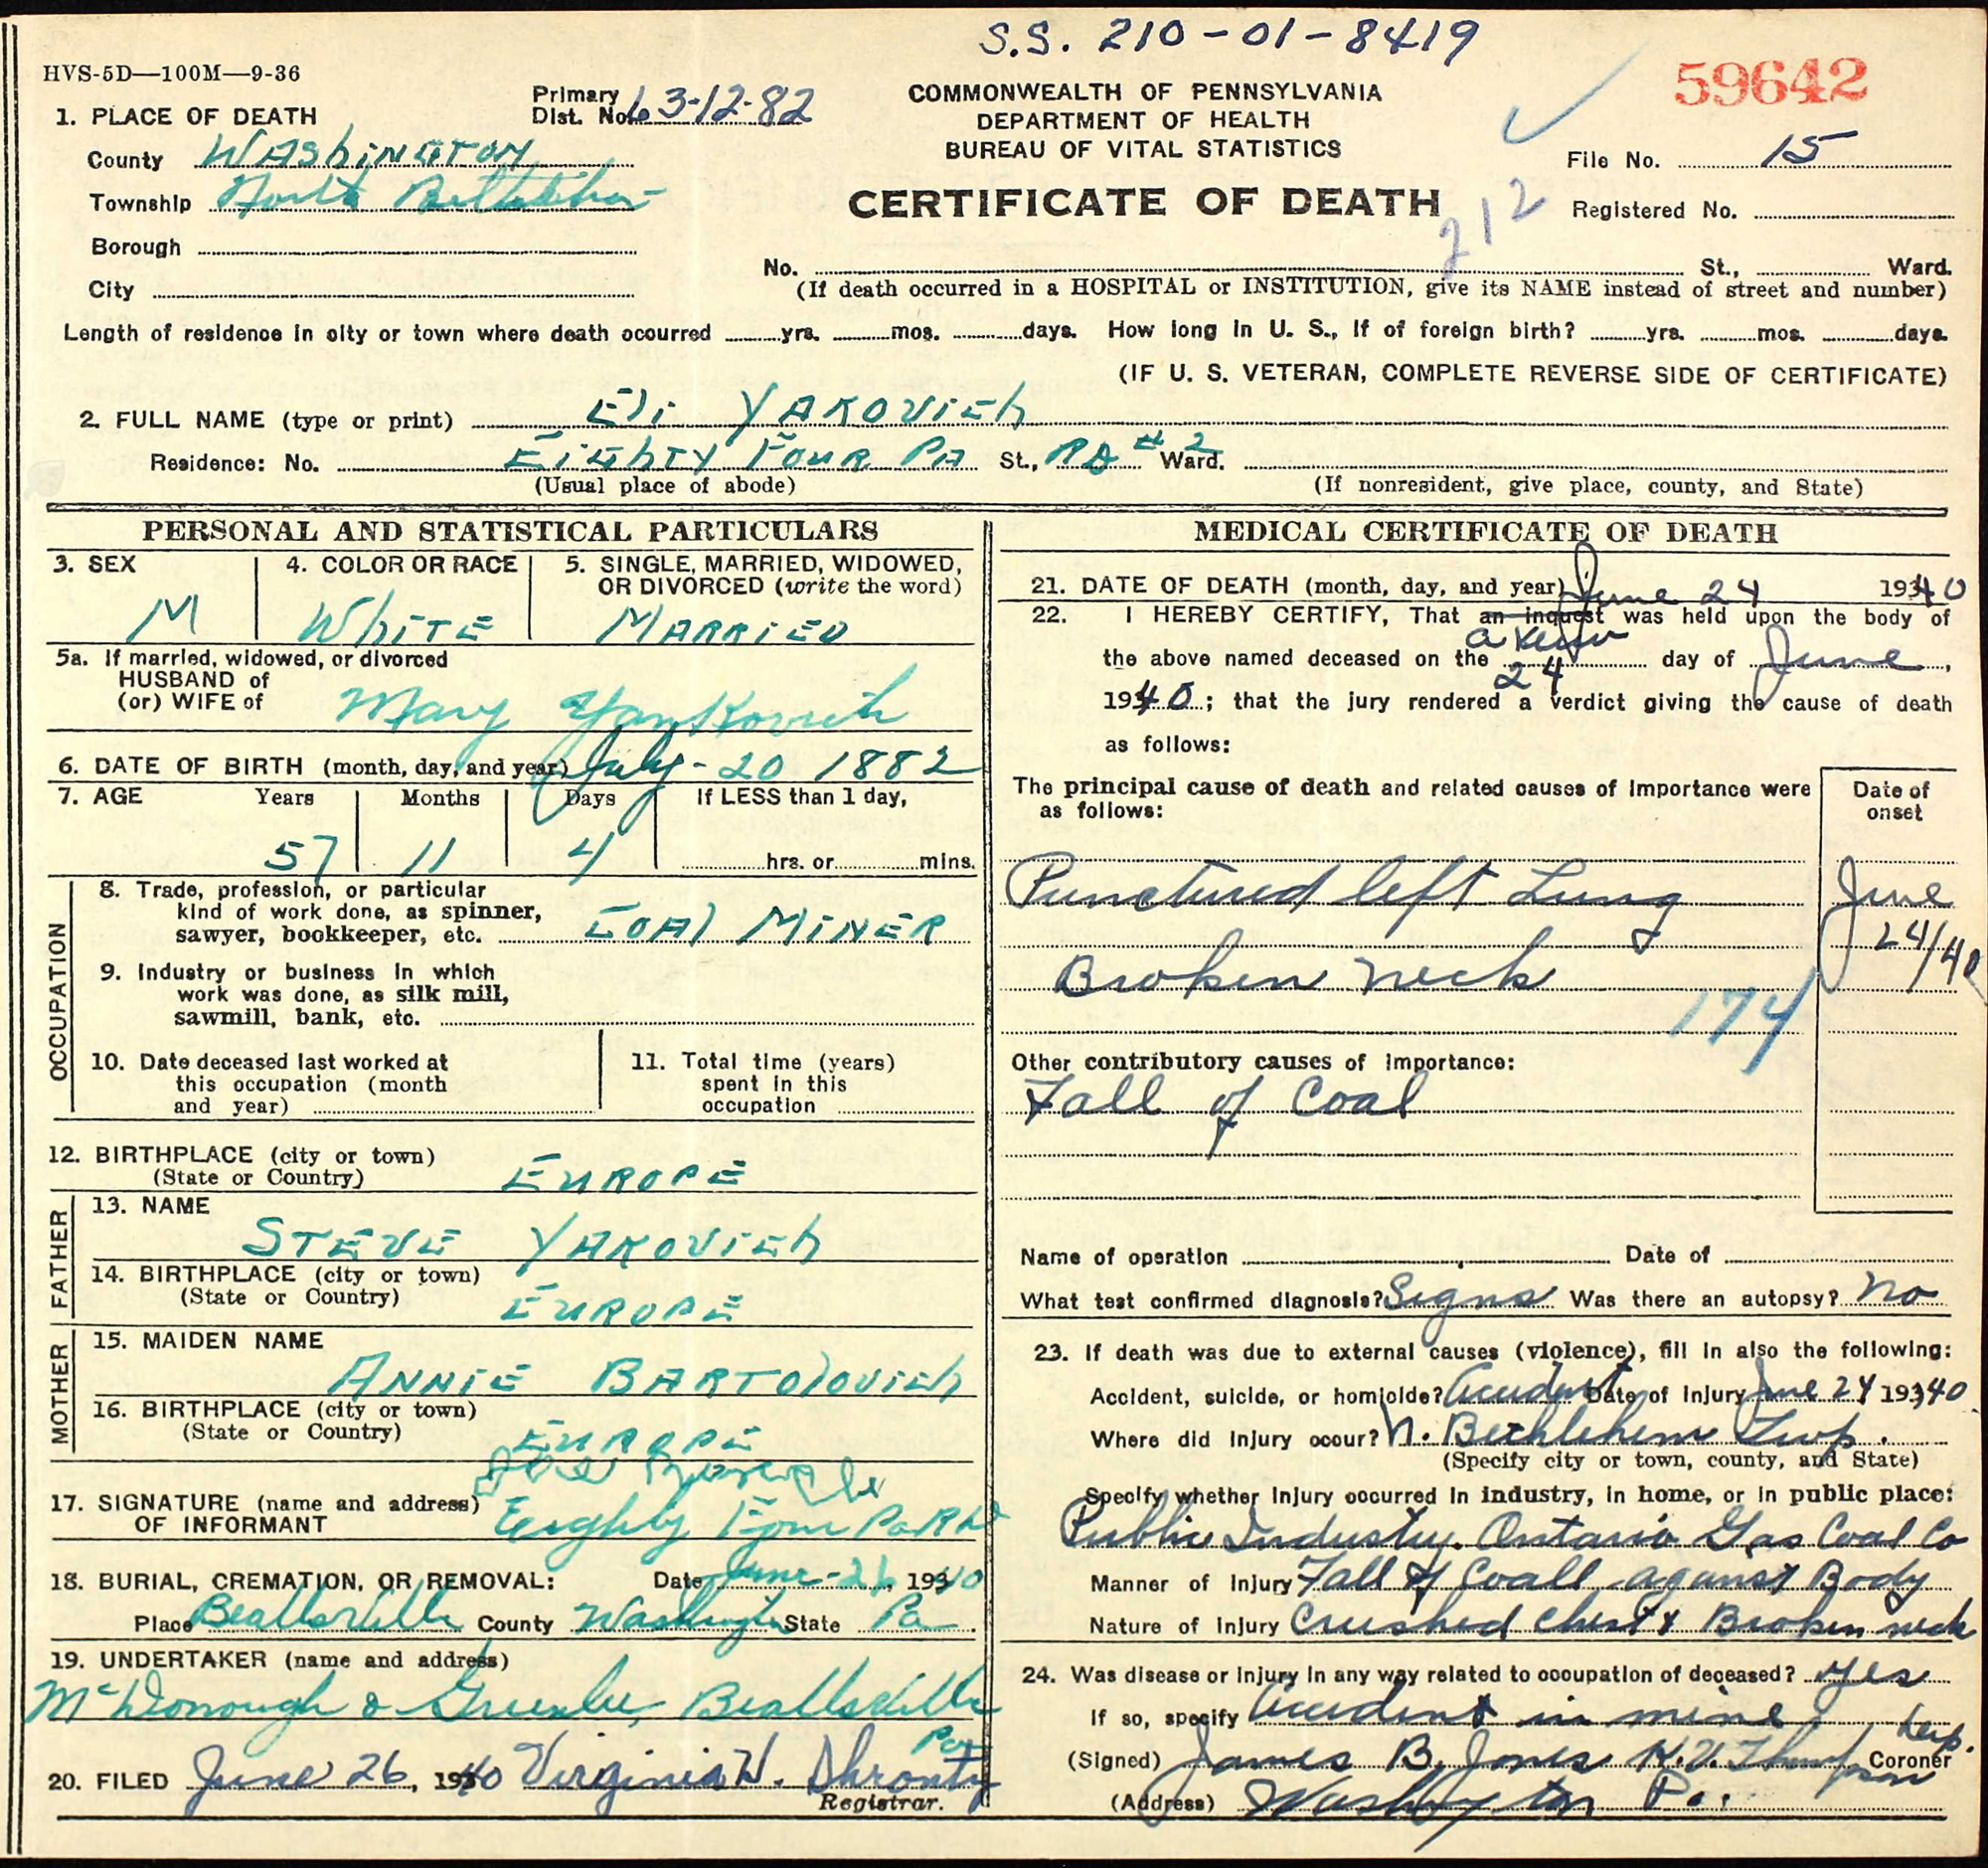 S.S. 210-01-8419
HVS-5D—100M—9-36
59642
1. PLACE OF DEATH
Primary Dist. No. 63-12-82
COMMONWEALTH OF PENNSYLVANIA
DEPARTMENT OF HEALTH
BUREAU OF VITAL STATISTICS
CERTIFICATE OF DEATH
212
File No. 15
Registered No.
County WAShiNGTON
Township North Bethlehem
Borough
City
No. St., Ward.
(If death occurred in a HOSPITAL or INSTITUTION, give its NAME instead of street and number)
Length of residence in city or town where death occurred yrs. mos. days. How long in U. S., if of foreign birth? yrs. mos. days.
(IF U. S. VETERAN, COMPLETE REVERSE SIDE OF CERTIFICATE)
2. FULL NAME (type or print) Eli YAKOVich
Residence: No. EiGhTY FOUR PA St., RD #2 Ward.
(Usual place of abode) (If nonresident, give place, county, and State)
PERSONAL AND STATISTICAL PARTICULARS
3. SEX
M
4. COLOR OR RACE
WhiTE
5. SINGLE, MARRIED, WIDOWED, OR DIVORCED (write the word)
MARRIED
5a. If married, widowed, or divorced
HUSBAND of
(or) WIFE of Mary Yankovich
6. DATE OF BIRTH (month, day, and year) July - 20 1882
7. AGE Years Months Days If LESS than 1 day,
57 11 4 hrs. or mins.
OCCUPATION
8. Trade, profession, or particular
kind of work done, as spinner,
sawyer, bookkeeper, etc. COAl MiNER
9. Industry or business in which
work was done, as silk mill,
sawmill, bank, etc.
10. Date deceased last worked at
this occupation (month
and year)
11. Total time (years)
spent in this
occupation
12. BIRTHPLACE (city or town)
(State or Country) EUROPE
FATHER
13. NAME
STEVE YAKOVich
14. BIRTHPLACE (city or town)
(State or Country) EUROPE
MOTHER
15. MAIDEN NAME
ANNIE BARTOlOVich
16. BIRTHPLACE (city or town)
(State or Country) EUROPE
17. SIGNATURE (name and address)
OF INFORMANT Eighty Four Pa
18. BURIAL, CREMATION, OR REMOVAL: Date June - 26, 1940
Place Beallsville County Washington State Pa.
19. UNDERTAKER (name and address)
McDonough & Greenlee, Beallsville
Pa
20. FILED June 26, 1940 Virginia W. Shrontz
Registrar.
MEDICAL CERTIFICATE OF DEATH
21. DATE OF DEATH (month, day, and year) June 24 1940
22. I HEREBY CERTIFY, That an inquest was held upon the body of
a view
the above named deceased on the 24 day of June,
1940; that the jury rendered a verdict giving the cause of death
as follows:
The principal cause of death and related causes of importance were
as follows:
Date of
onset
Punctured left Lung
June
24/40
Broken neck
174
Other contributory causes of importance:
Fall of Coal
Name of operation Date of
What test confirmed diagnosis? Signs Was there an autopsy? No
23. If death was due to external causes (violence), fill in also the following:
Accident, suicide, or homicide? Accident Date of injury June 24 1940
Where did injury occur? N. Bethlehem Twp.
(Specify city or town, county, and State)
Specify whether injury occurred in industry, in home, or in public place:
Public Industry. Ontario Gas Coal Co
Manner of injury Fall of Coall against Body
Nature of injury Crushed chest & Broken neck
24. Was disease or injury in any way related to occupation of deceased? yes
If so, specify Accident in mine
(Signed) James B. Jones K.V. Thompson Dep. Coroner
(Address) Washington Pa.